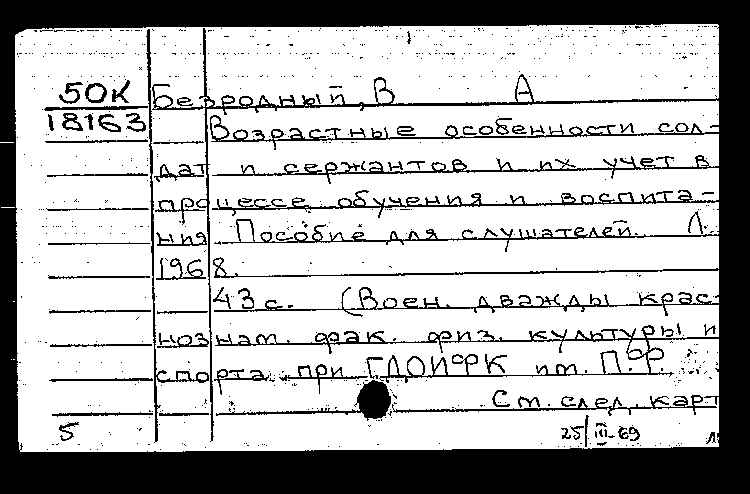 50К Безродный, В А
18163 Возрастные особенности сол-
дат и сержантов и их учет в
процессе обучения и воспита-
ния Пособие для слушателей. Л.
1968.
43 с. (Воен. дважды крас-
нознам. фак. физ. культуры и
спорта при ГДОИФК им. П.Ф.
См. след. карт
5 25/III-69